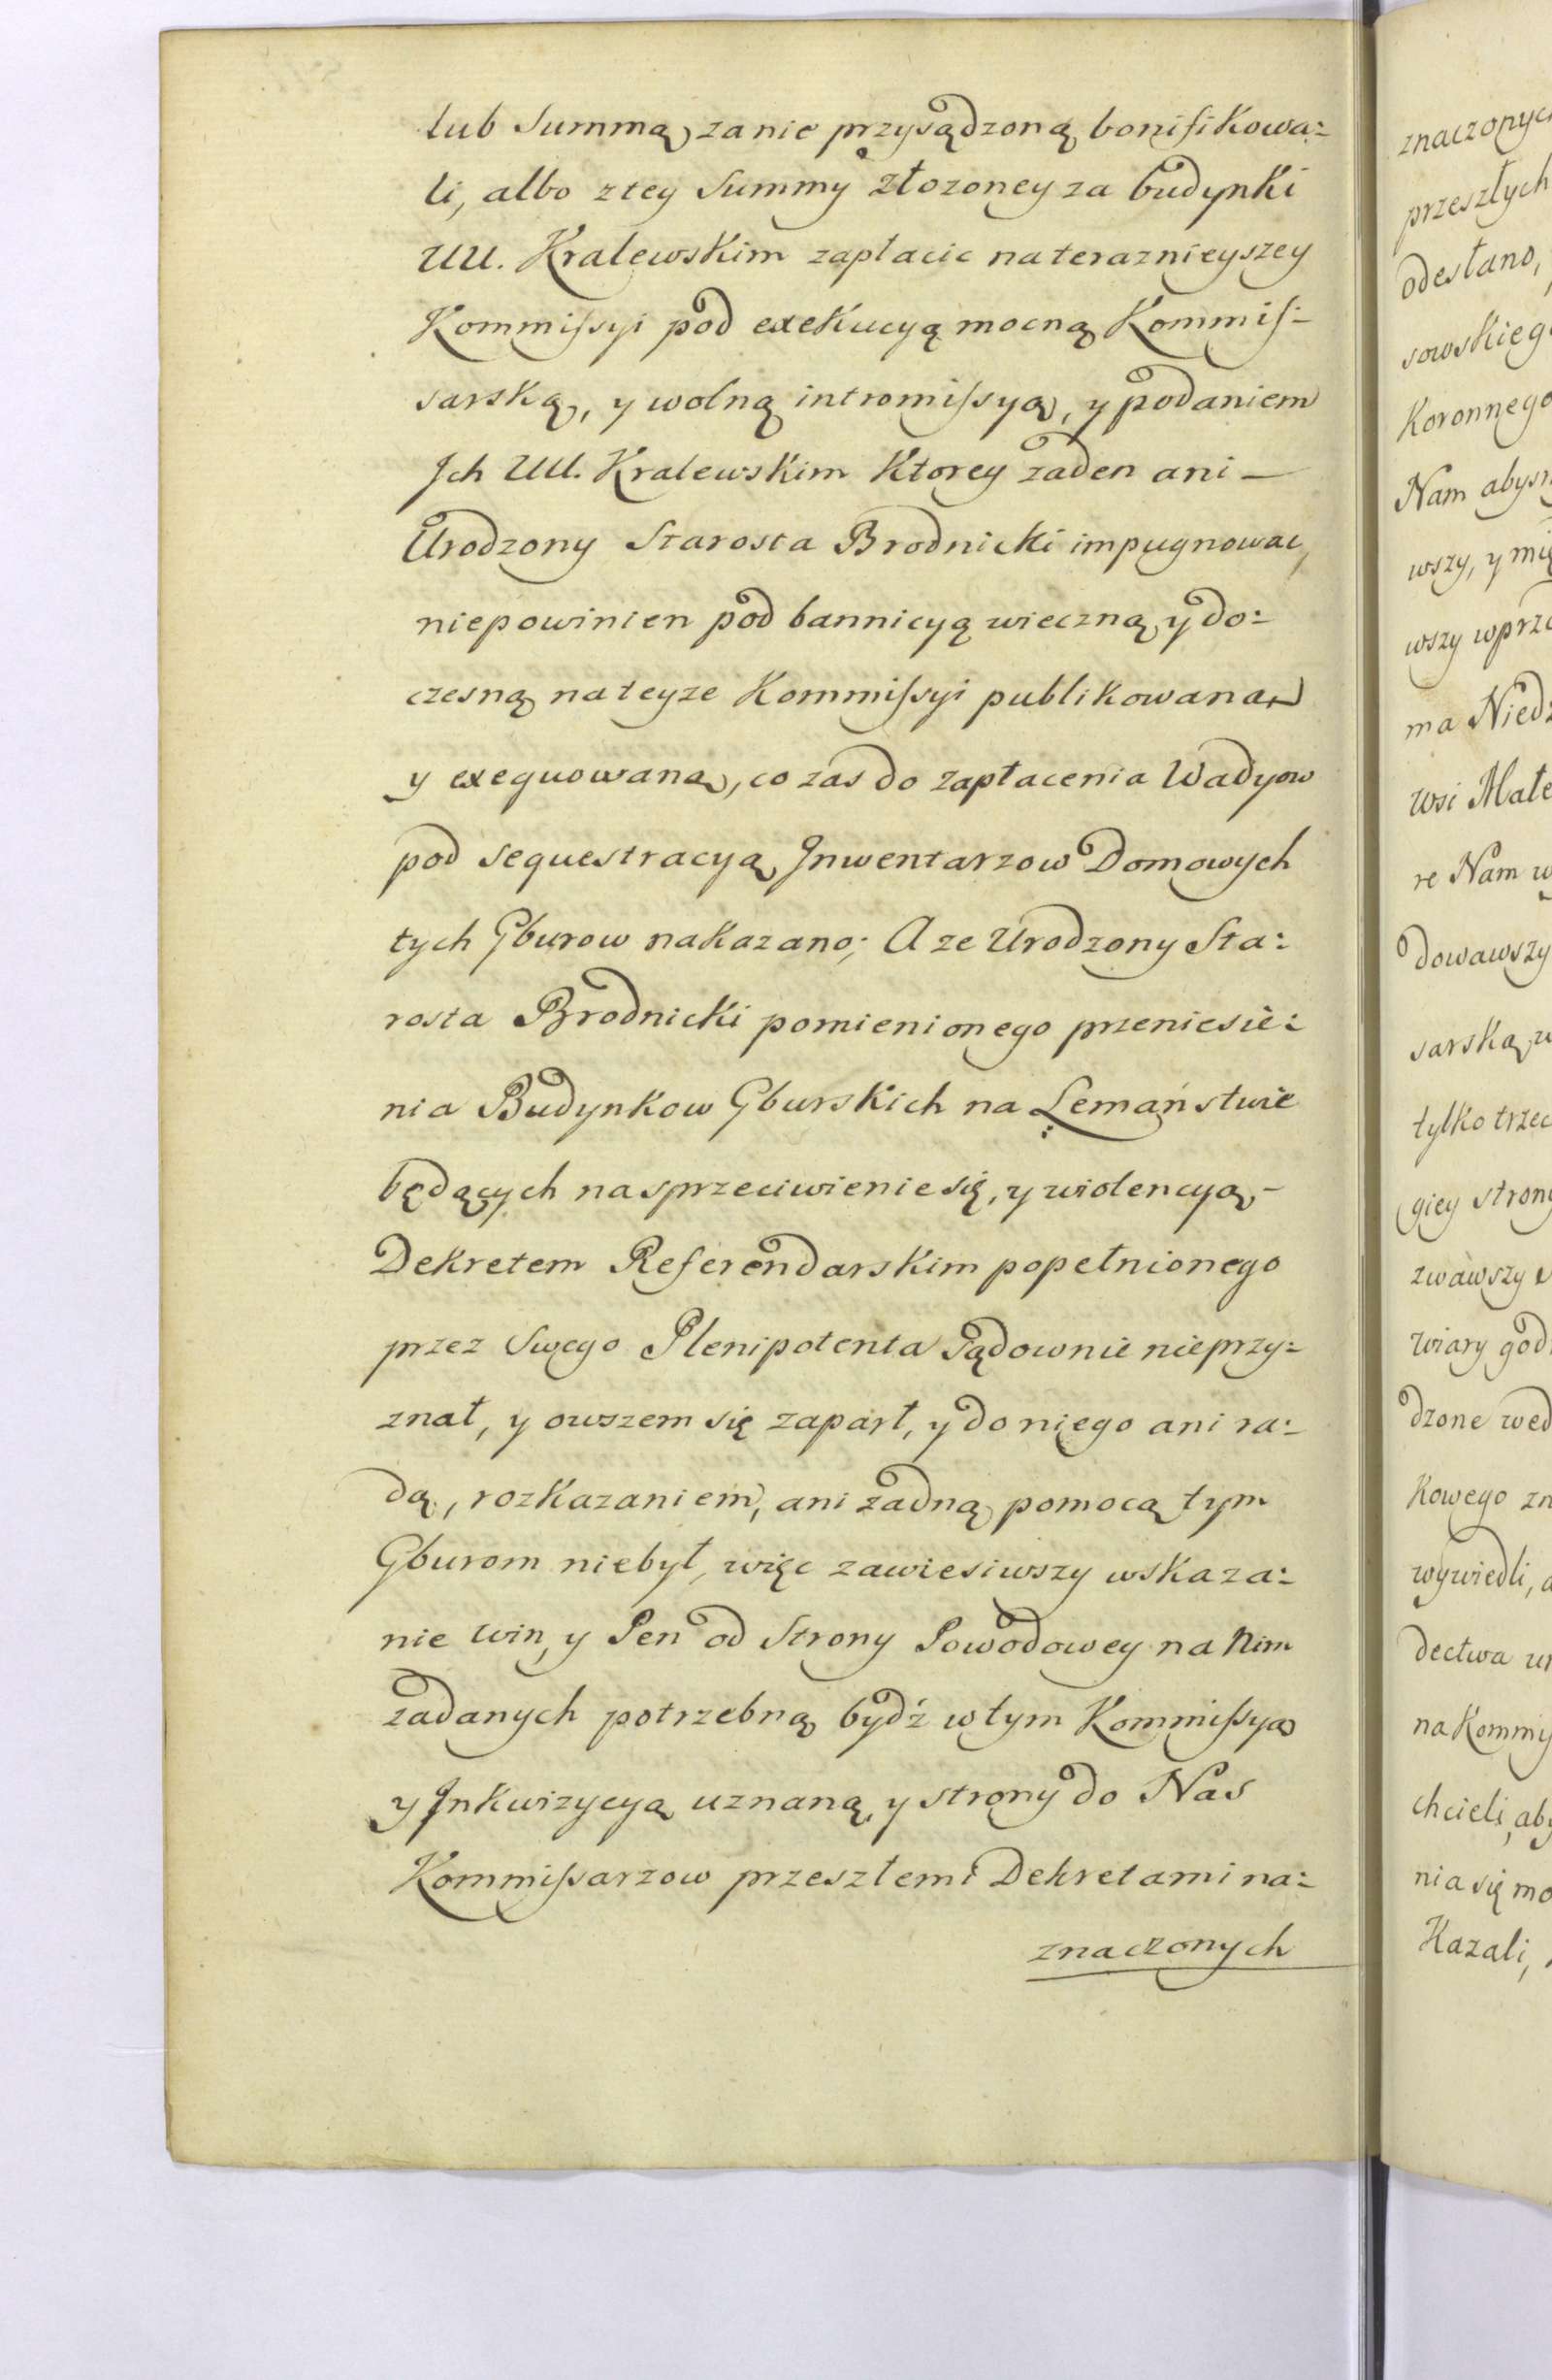 lub Summą zanie przysądzoną bonifikowa:
li, albo ztey Summy złozoney za budynki
UU. Kralewskim zapłacic nateraznieyszey
Kommiſsyi pod exekucyą mocną Kommiſ:
sarską, y wolną intromiſsyą, y podaniem
Jch UU. Kralewskim Ktorey zaden ani —
Urodzony Starosta Brodnicki impugnowac,
niepowinien pod bannicyą wieczną, y do:
czesną nateyze Kommiſsyi publikowaną
y exequowaną, co zas do zapłacenia Wadyow
pod sequestracyą Jnwentarzow Domowych
tych Gburow nakazano; A ze Urodzony Sta:
rosta Brodnicki pomienionego przeniesie:
nia Budynkow Gburskich na Lemaństwie
będących nasprzeciwieniesię, y wiolencyą, -
Dekretem Referendarskim popełnionego
przez Swego Plenipotenta Sądownie nieprzy:
znał, y owszem się zaparł, y do niego ani ra:
dą, rozkazaniem, ani żadną pomocą tym
Gburom niebył, więc zawiesiwszy wskaza:
nie win, y Pen od Strony Powodowey na Nim
zadanych potrzebną bydź wtym Kommiſsyą
y Jnkwizycyą uznaną, y strony do Nas
Kommiſsarzow przeszłemi Dekretami na:
znaczonych
znaczonych
przeszłych
odesłano,
sowskieg
Koronnego
Nam
wszy, y
wszy
ma
wsi
re Nam
dowawszy
sarską,
tylko
giey
zwawszy
wiary
dzone
kowego
wywiedli,
dectwa
na
chcieli,
nia się
Kazali,